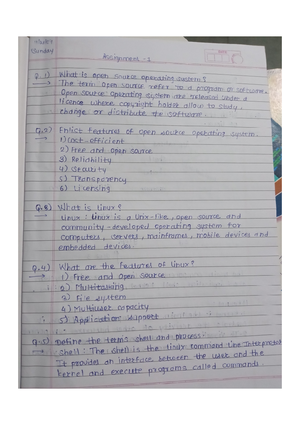 Sunday
Assignment - 1
Q.1) What is open source operating system?
→ The term open source refer to a program or software.
Open source operating system are released under a
licence where copyright holder allow to study,
change or distribute the software.
Q.2) Enlist features of open source operating system.
→ 1) Cost-efficient
2) Free and open source
3) Reliability
4) Security
5) Transparency
6) Licensing
Q.3) What is Linux?
→ Linux: Linux is a Unix-like, open source and
community-developed operating system for
computers, servers, mainframes, mobile devices and
embedded devices.
Q.4) What are the features of Linux?
→ 1) Free and open source
2) Multitasking
3) File system
4) Multiuser capacity
5) Application support
Q.5) Define the terms shell and process.
→ Shell: The shell is the linux command line interpreter
It provides an interface between the user and the
kernel and execute programs called commands.